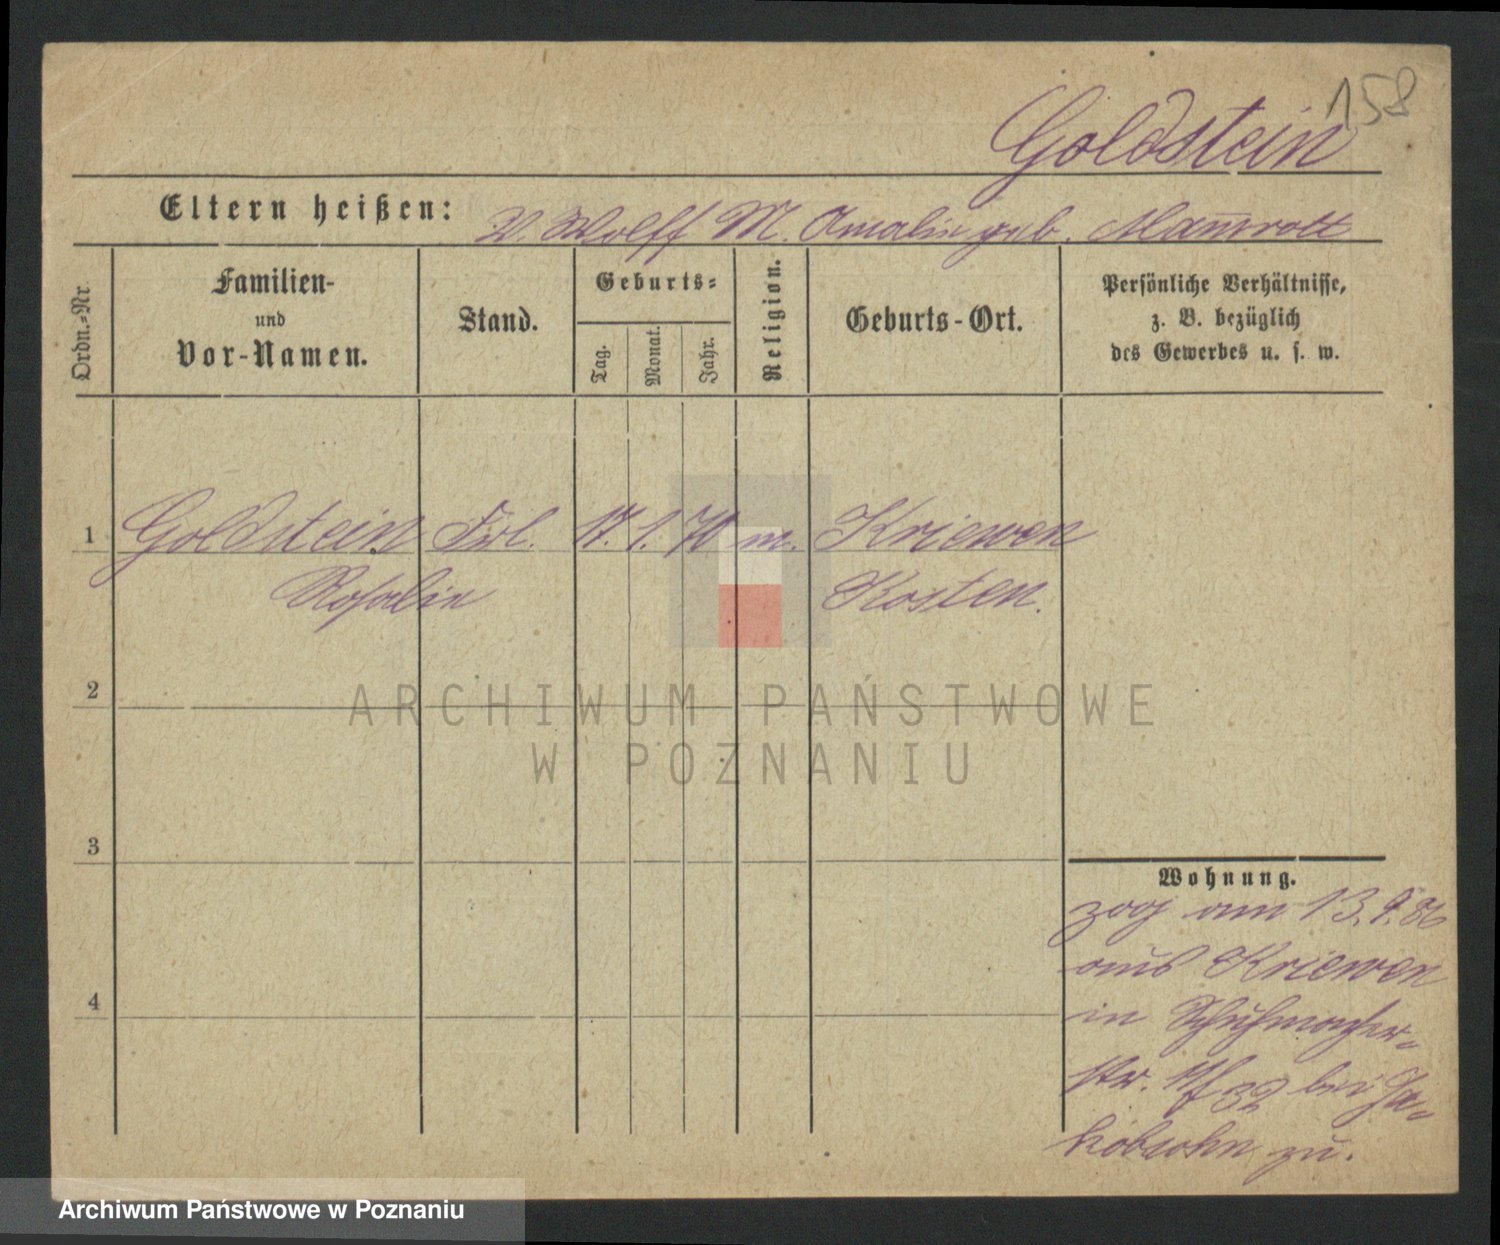 158
Goldstein
Eltern heißen: V. Wolff M. Amalie geb. Mamroth
Ordn.-Nr
Familien-
und
Vor-Namen.
Stand.
Geburts-
Tag.
Monat.
Jahr.
Religion.
Geburts-Ort.
Persönliche Verhältnisse,
z. B. bezüglich
des Gewerbes u. s. w.
1 Goldstein Frl. 17. 1. 70 m. Kriewen
Rosalie Kosten.
2
3
4
Wohnung.
zog am 13.9.86
aus Kriewen
in Schuhmacher-
str. 11/32 bei Ja-
kobsohn zu.
ARCHIWUM PAŃSTWOWE
W POZNANIU
Archiwum Państwowe w Poznaniu